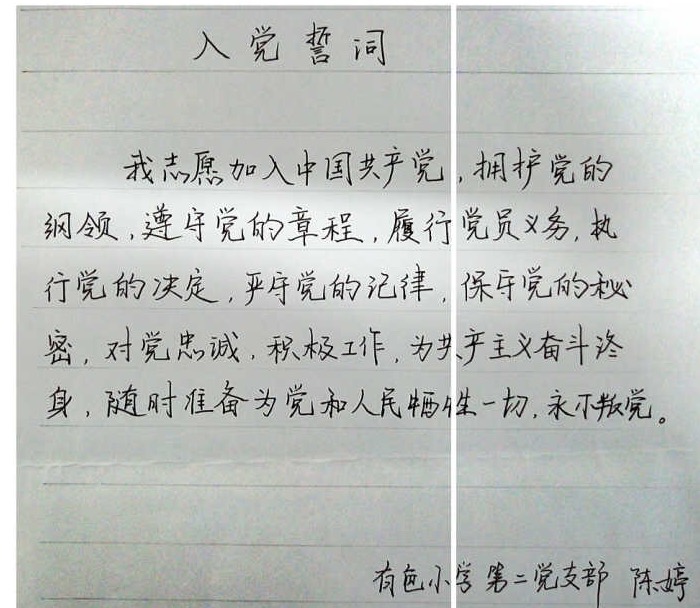 入党誓词
我志愿加入中国共产党,拥护党的
纲领,遵守党的章程,履行党员义务,执
行党的决定,严守党的纪律,保守党的秘
密,对党忠诚,积极工作,为共产主义奋斗终
身,随时准备为党和人民牺牲一切,永不叛党。
有色小学第二党支部 陈婷